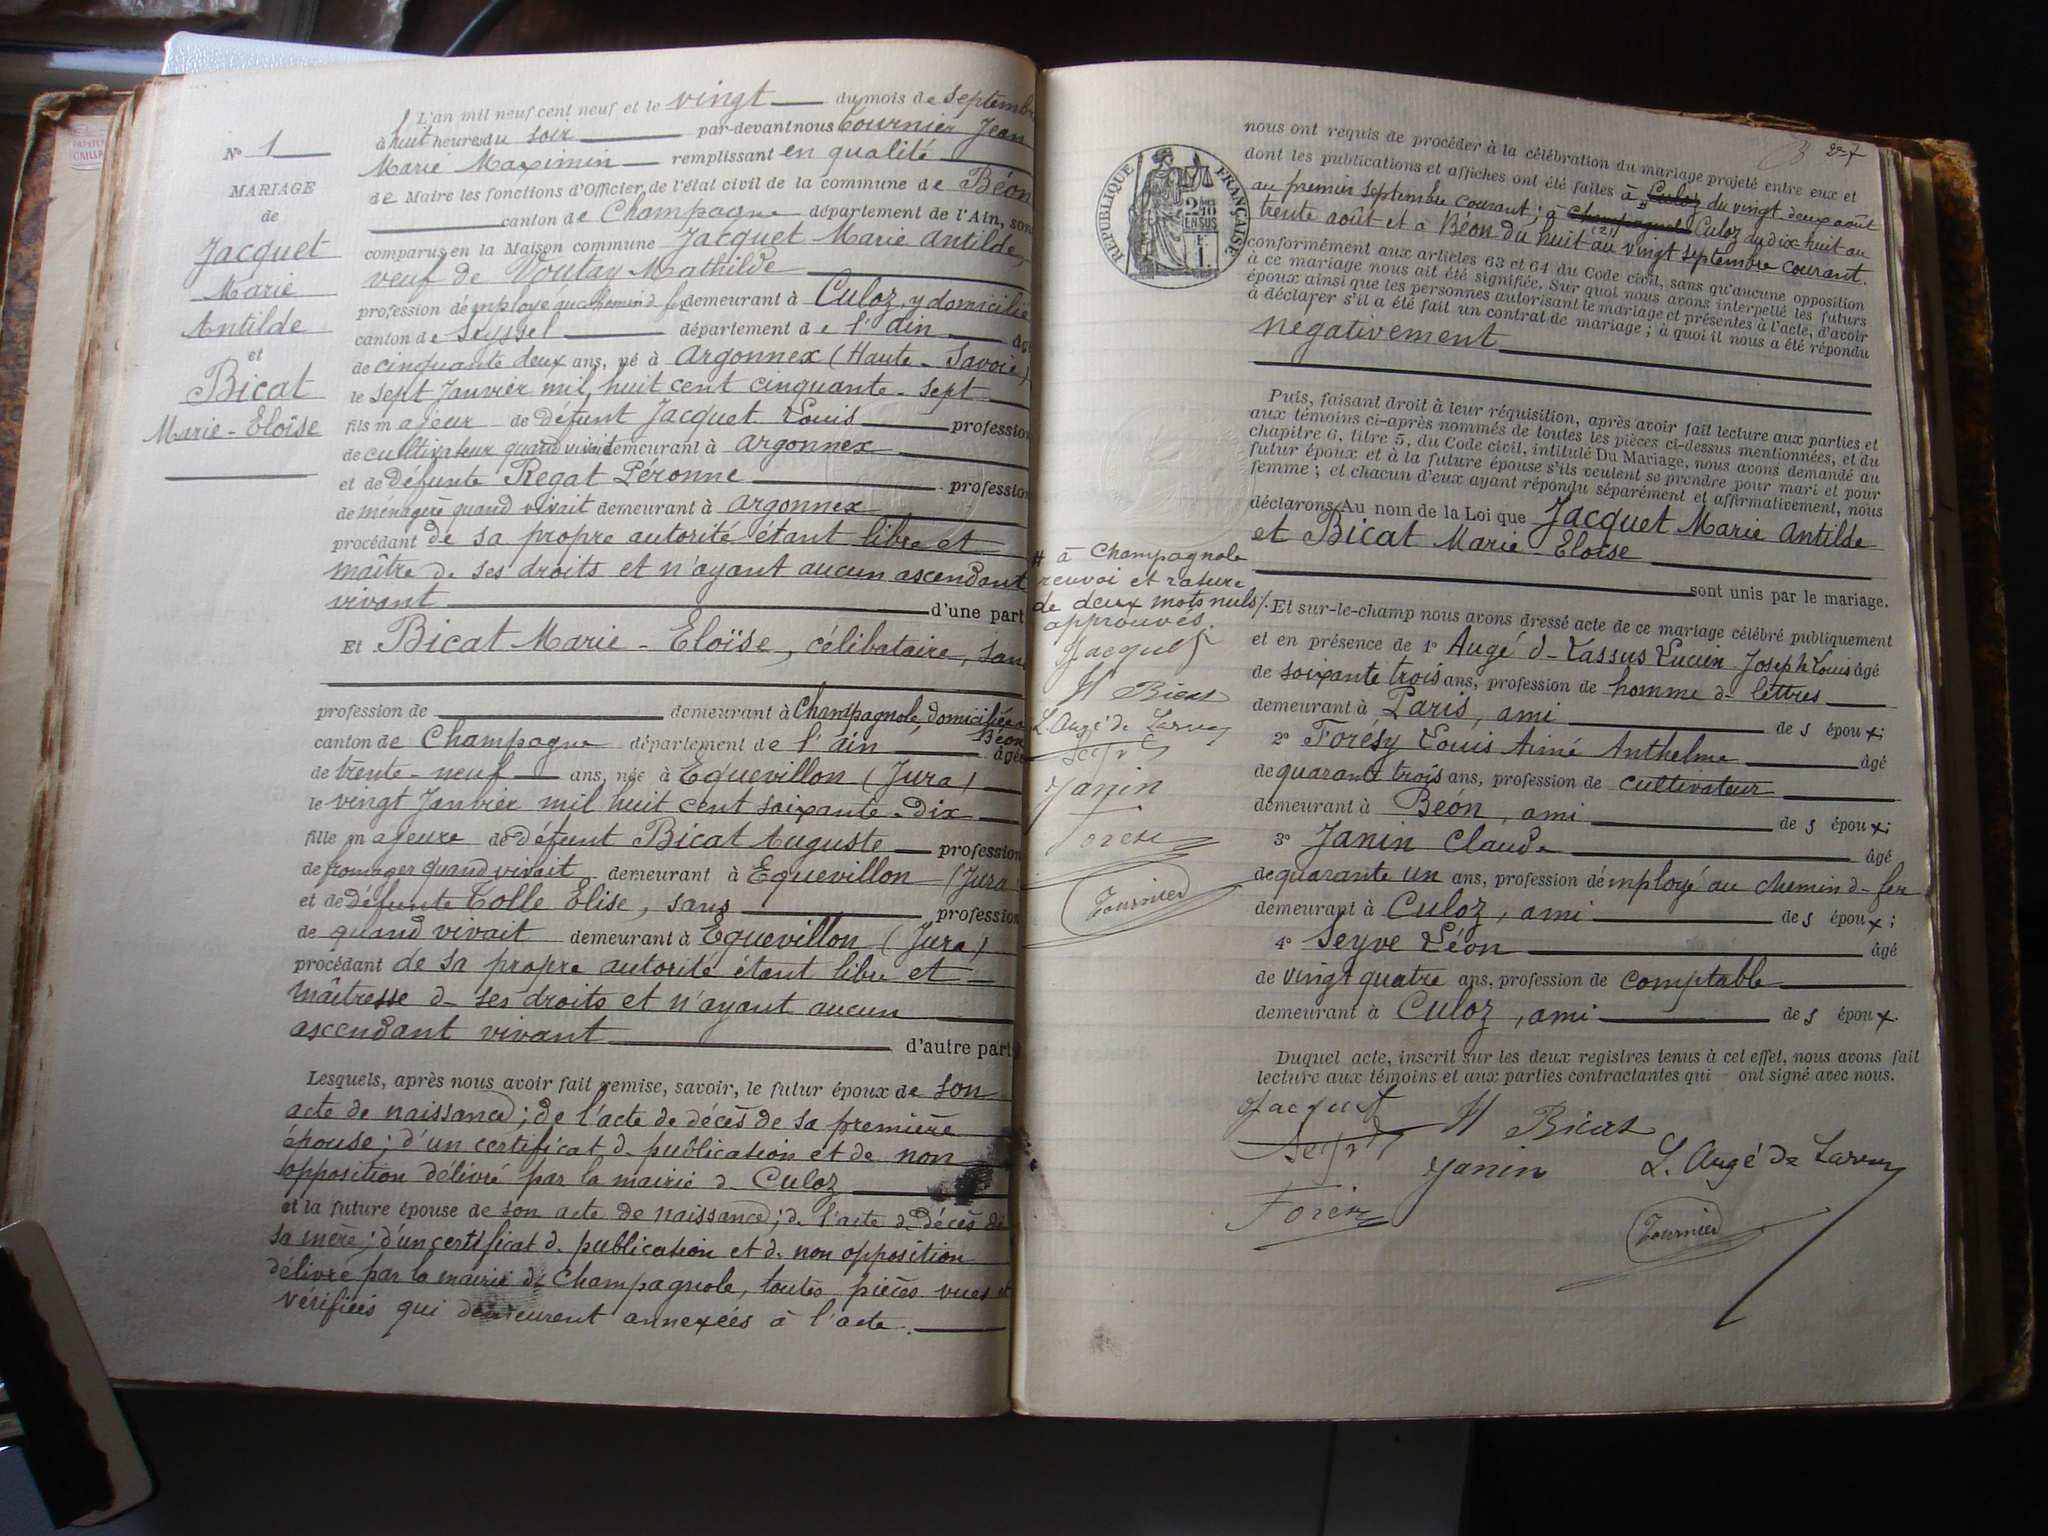 L'an mil neuf cent neuf et le vingt du mois de septembre
à huit heures du soir par-devant nous Tournier Jean
Marie Maximin remplissant en qualité
de Maire les fonctions d'Officier de l'état civil de la commune de Béon
canton de Champagne département de l'Ain, sont
comparus en la Maison commune Jacquet Marie Antilde,
veuf de Mathilde
profession d'employé au chemin d fer demeurant à Culoz, y domicilié
canton de Seyssel département de l'ain âgé
de cinquante deux ans, né à Argonnex (Haute-Savoie)
le sept Janvier mil huit cent cinquante-sept
fils majeur de défunt Jacquet Louis profession
de cultivateur quand vivait demeurant à Argonnex
et de défunte Regat Péronne profession
de ménagère quand vivait demeurant à Argonnex
procédant de sa propre autorité étant libre et
maître de ses droits et n'ayant aucun ascendant
vivant d'une part
Et Bicat Marie-Eloïse, célibataire, sans
profession de demeurant à Champagnole, domiciliée à
Béon
canton de Champagne département de l'ain âgée
de trente-neuf ans, née à Equevillon (Jura)
le vingt Janvier mil huit cent soixante-dix
fille majeure de défunt Bicat Auguste profession
de fromager quand vivait demeurant à Equevillon (Jura)
et de défunte Tolle Elise, sans profession
de quand vivait demeurant à Equevillon (Jura)
procédant de sa propre autorité étant libre et
maîtresse de ses droits et n'ayant aucun
ascendant vivant d'autre part
Lesquels, après nous avoir fait remise, savoir, le futur époux de son
acte de naissance; de l'acte de décès de sa première
épouse; d'un certificat de publication et de non
opposition délivré par la mairie de Culoz
et la future épouse de son acte de naissance; de l'acte de décès de
sa mère; d'un certificat de publication et de non opposition
délivré par la mairie de Champagnole, toutes pièces vues et
vérifiées qui demeurent annexées à l'acte.
N° 1
MARIAGE
de
Jacquet
Marie
Antilde
et
Bicat
Marie-Eloïse
RÉPUBLIQUE FRANÇAISE
2/10 EN SUS
1 F.
2-7
nous ont requis de procéder à la célébration du mariage projeté entre eux et
dont les publications et affiches ont été faites à Culoz du vingt deux août
au premier septembre courant; à Champagnole Culoz du dix-huit au
trente août et à Béon du huit au vingt septembre courant.
conformément aux articles 63 et 64 du Code civil, sans qu'aucune opposition
à ce mariage nous ait été signifiée. Sur quoi nous avons interpellé les futurs
époux ainsi que les personnes autorisant le mariage et présentes à l'acte, d'avoir
à déclarer s'il a été fait un contrat de mariage; à quoi il nous a été répondu
négativement
Puis, faisant droit à leur réquisition, après avoir fait lecture aux parties et
aux témoins ci-après nommés de toutes les pièces ci-dessus mentionnées, et du
chapitre 6, titre 5, du Code civil, intitulé Du Mariage, nous avons demandé au
futur époux et à la future épouse s'ils veulent se prendre pour mari et pour
femme; et chacun d'eux ayant répondu séparément et affirmativement, nous
déclarons Au nom de la Loi que Jacquet Marie Antilde
et Bicat Marie-Eloïse
sont unis par le mariage.
Et sur-le-champ nous avons dressé acte de ce mariage célébré publiquement
et en présence de 1° Augé de Lassus Lucien Joseph Louis âgé
de soixante trois ans, profession de homme de lettres
demeurant à Paris, ami des époux;
2° Forésy Louis Aimé Anthelme âgé
de quarante trois ans, profession de cultivateur
demeurant à Béon, ami des époux;
3° Janin Claude âgé
de quarante un ans, profession d'employé au chemin de fer
demeurant à Culoz, ami des époux;
4° Seyve Léon âgé
de vingt quatre ans, profession de comptable
demeurant à Culoz, ami des époux.
Duquel acte, inscrit sur les deux registres tenus à cet effet, nous avons fait
lecture aux témoins et aux parties contractantes qui ont signé avec nous.
Jacquet
M Bicat
Seyve
Janin
L. Augé de Lassus
Tournier
# à Champagnole
renvoi et rature
de deux mots nuls
approuvés.
Jacquet
M Bicat
L. Augé de Lassus
Seyve
Janin
Tournier